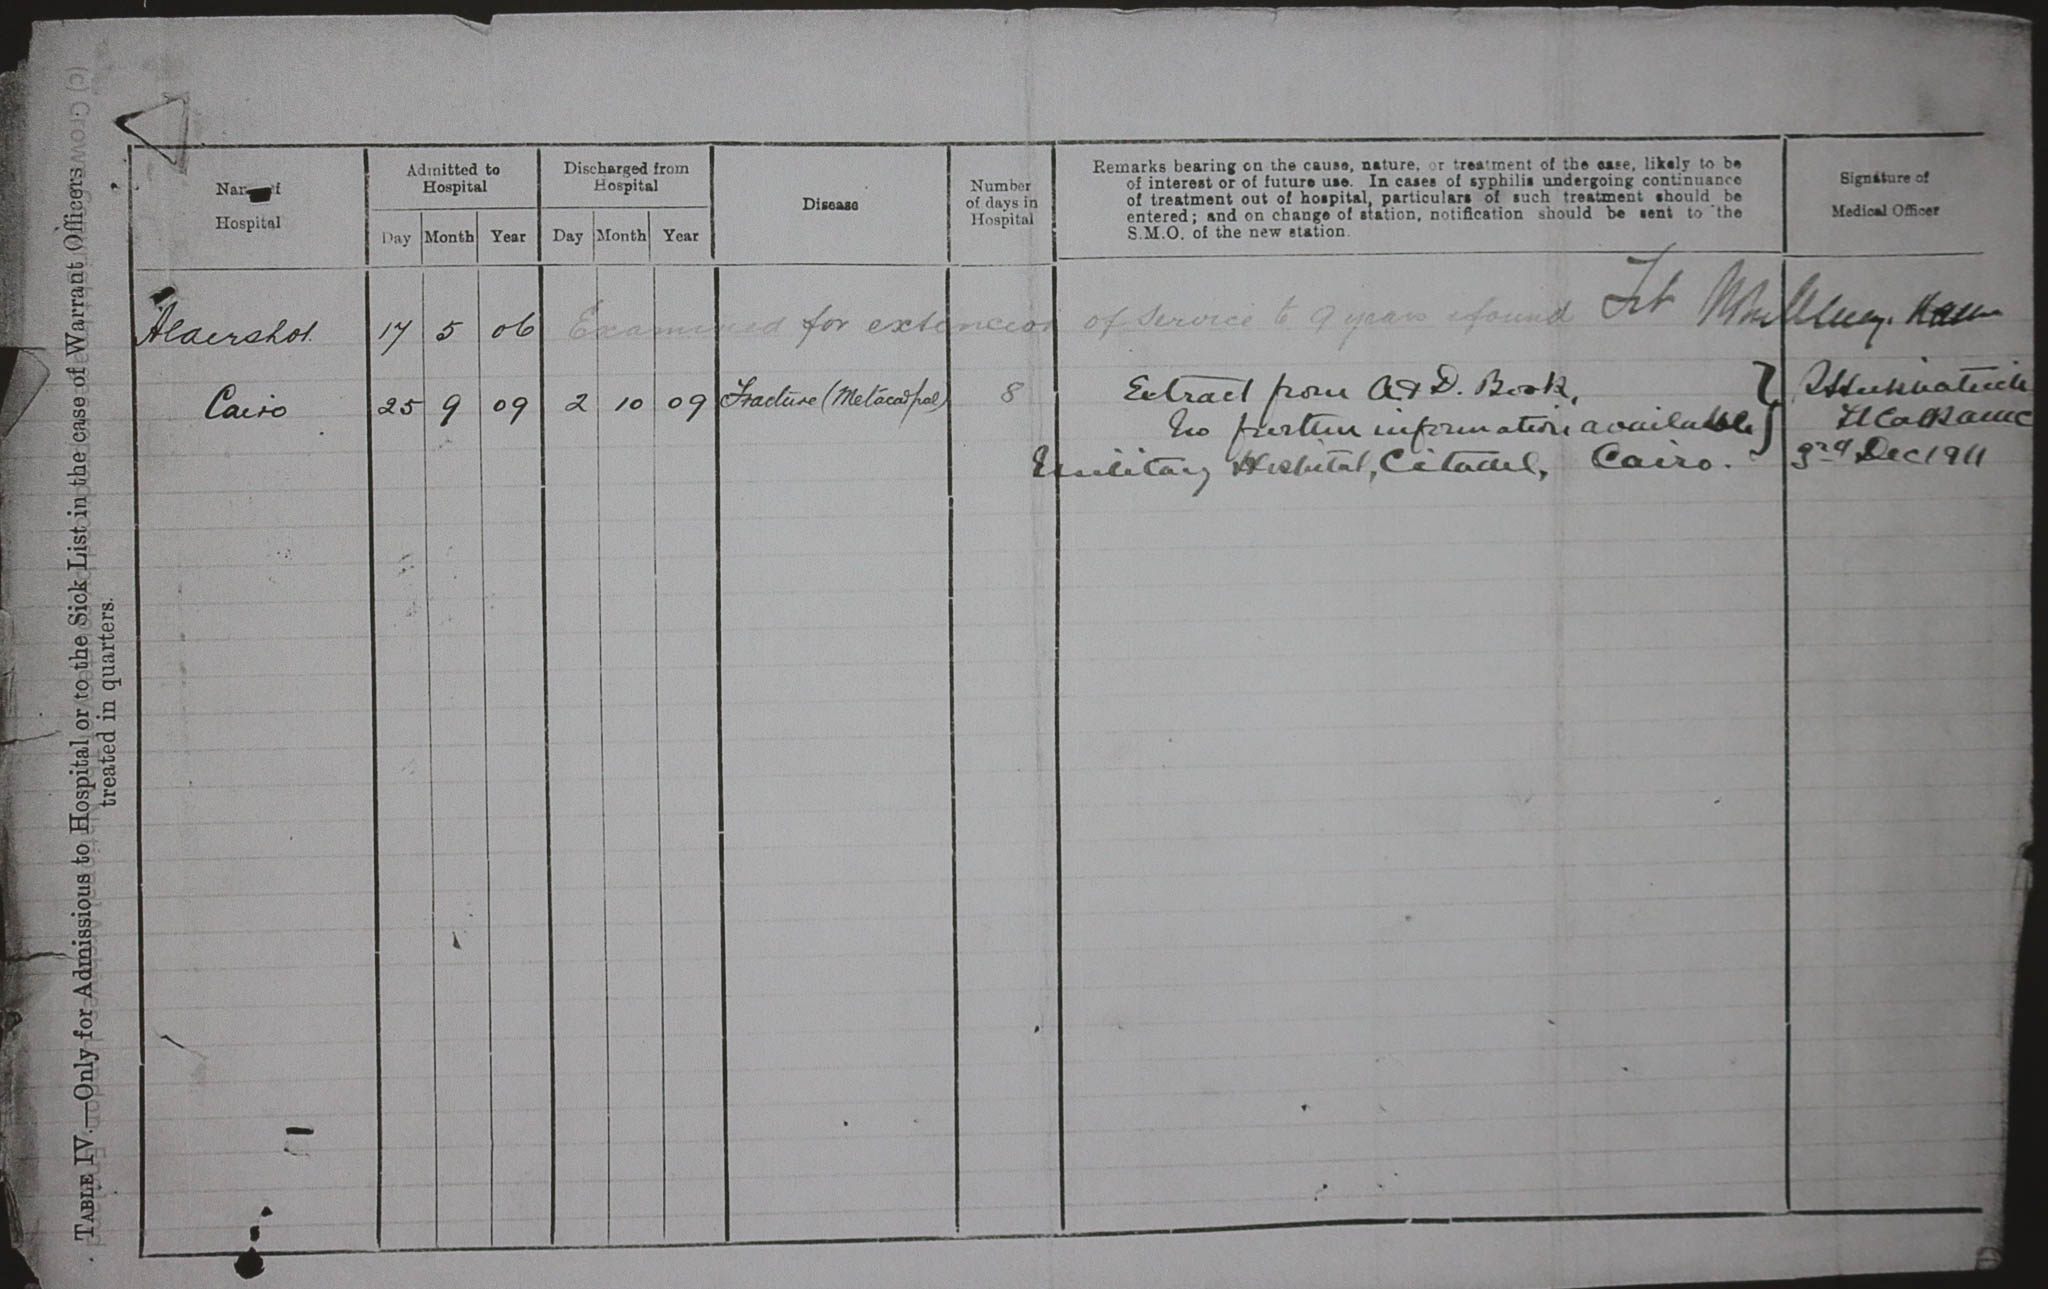 TABLE IV.—Only for Admissions to Hospital or to the Sick List in the case of Warrant Officers
treated in quarters.
Name of
Hospital
Admitted to
Hospital
Day Month Year
Discharged from
Hospital
Day Month Year
Disease
Number
of days in
Hospital
Remarks bearing on the cause, nature, or treatment of the case, likely to be
of interest or of future use. In cases of syphilis undergoing continuance
of treatment out of hospital, particulars of such treatment should be
entered; and on change of station, notification should be sent to the
S.M.O. of the new station.
Signature of
Medical Officer
Aldershot. 17 5 06 Examined for extension of service to 9 years & found Fit
Cairo 25 9 09 2 10 09 Fracture (Metacarpal) 8 Extract from A & D. Book,
No further information available
Military Hospital, Citadel, Cairo. 3rd Dec 1911